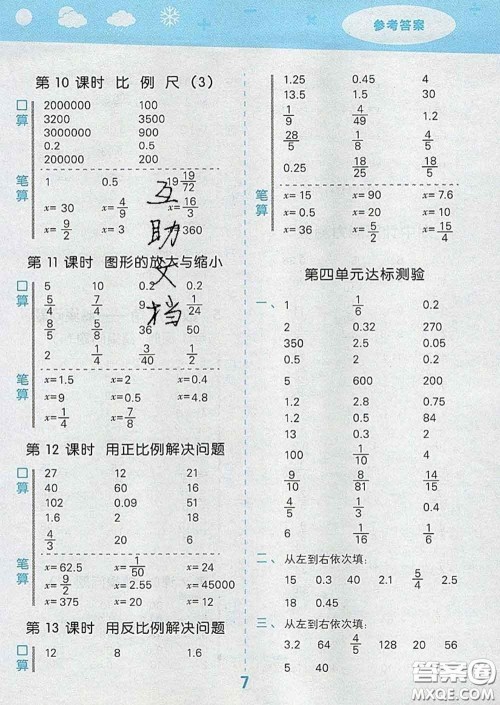 参考答案
第10课时 比例尺(3)
口算
2000000 100
3200 3500
3000000 900
0.2 0.5
200000 200
笔算
1 0.5 19 19/72
x=30 x=4/9 x=16/3
x=9/2 x=3 360
第11课时 图形的放大与缩小
口算
5 10 0.2 0.2
5/4 7/4 9/2 1/24
8/5 5/8 36 50
2 1/4 3/40 1/2
笔算
x=1.5 x=2 x=0.4
x=9 x=0.5 x=4.8
x=1/4 x=7/8
第12课时 用正比例解决问题
口算
27 12 21
40 60 16
102 0.09 51
1.6 2 18
4/3 20 6
笔算
x=62.5 x=1/50 x=24
x=9/2 x=2.55 x=45000
x=375 x=20 x=12
第13课时 用反比例解决问题
口
12 8 1.6
1.25 0.45 4
13.5 2 2.4
1/9 4/49 2/5
28/5 1/8 1/8
0.25 18/25 18/5
笔算
x=15 x=90 x=7.6
x=36 x=20 x=10
x=9/2 x=5/2 x=15/4
第四单元达标测验
一、 1 1/6 0.2
2 0.32 270
0.35 2.7 350
0.5 2 0.2
5 600 200
1.2 2.8 0.54
1.2 0.2 84
100 3.6 30
9/10 8/81 14/15
4/5 1/3 0.1
0 4/45 6/7
二、 从左到右依次填:
15 0.3 40 2.1 5/4 2.4
18 0.45
三、 从左到右依次填:
3.2 64 4/5 128 20 56
5 40
7
互助文档
答案圈
MXQE.COM